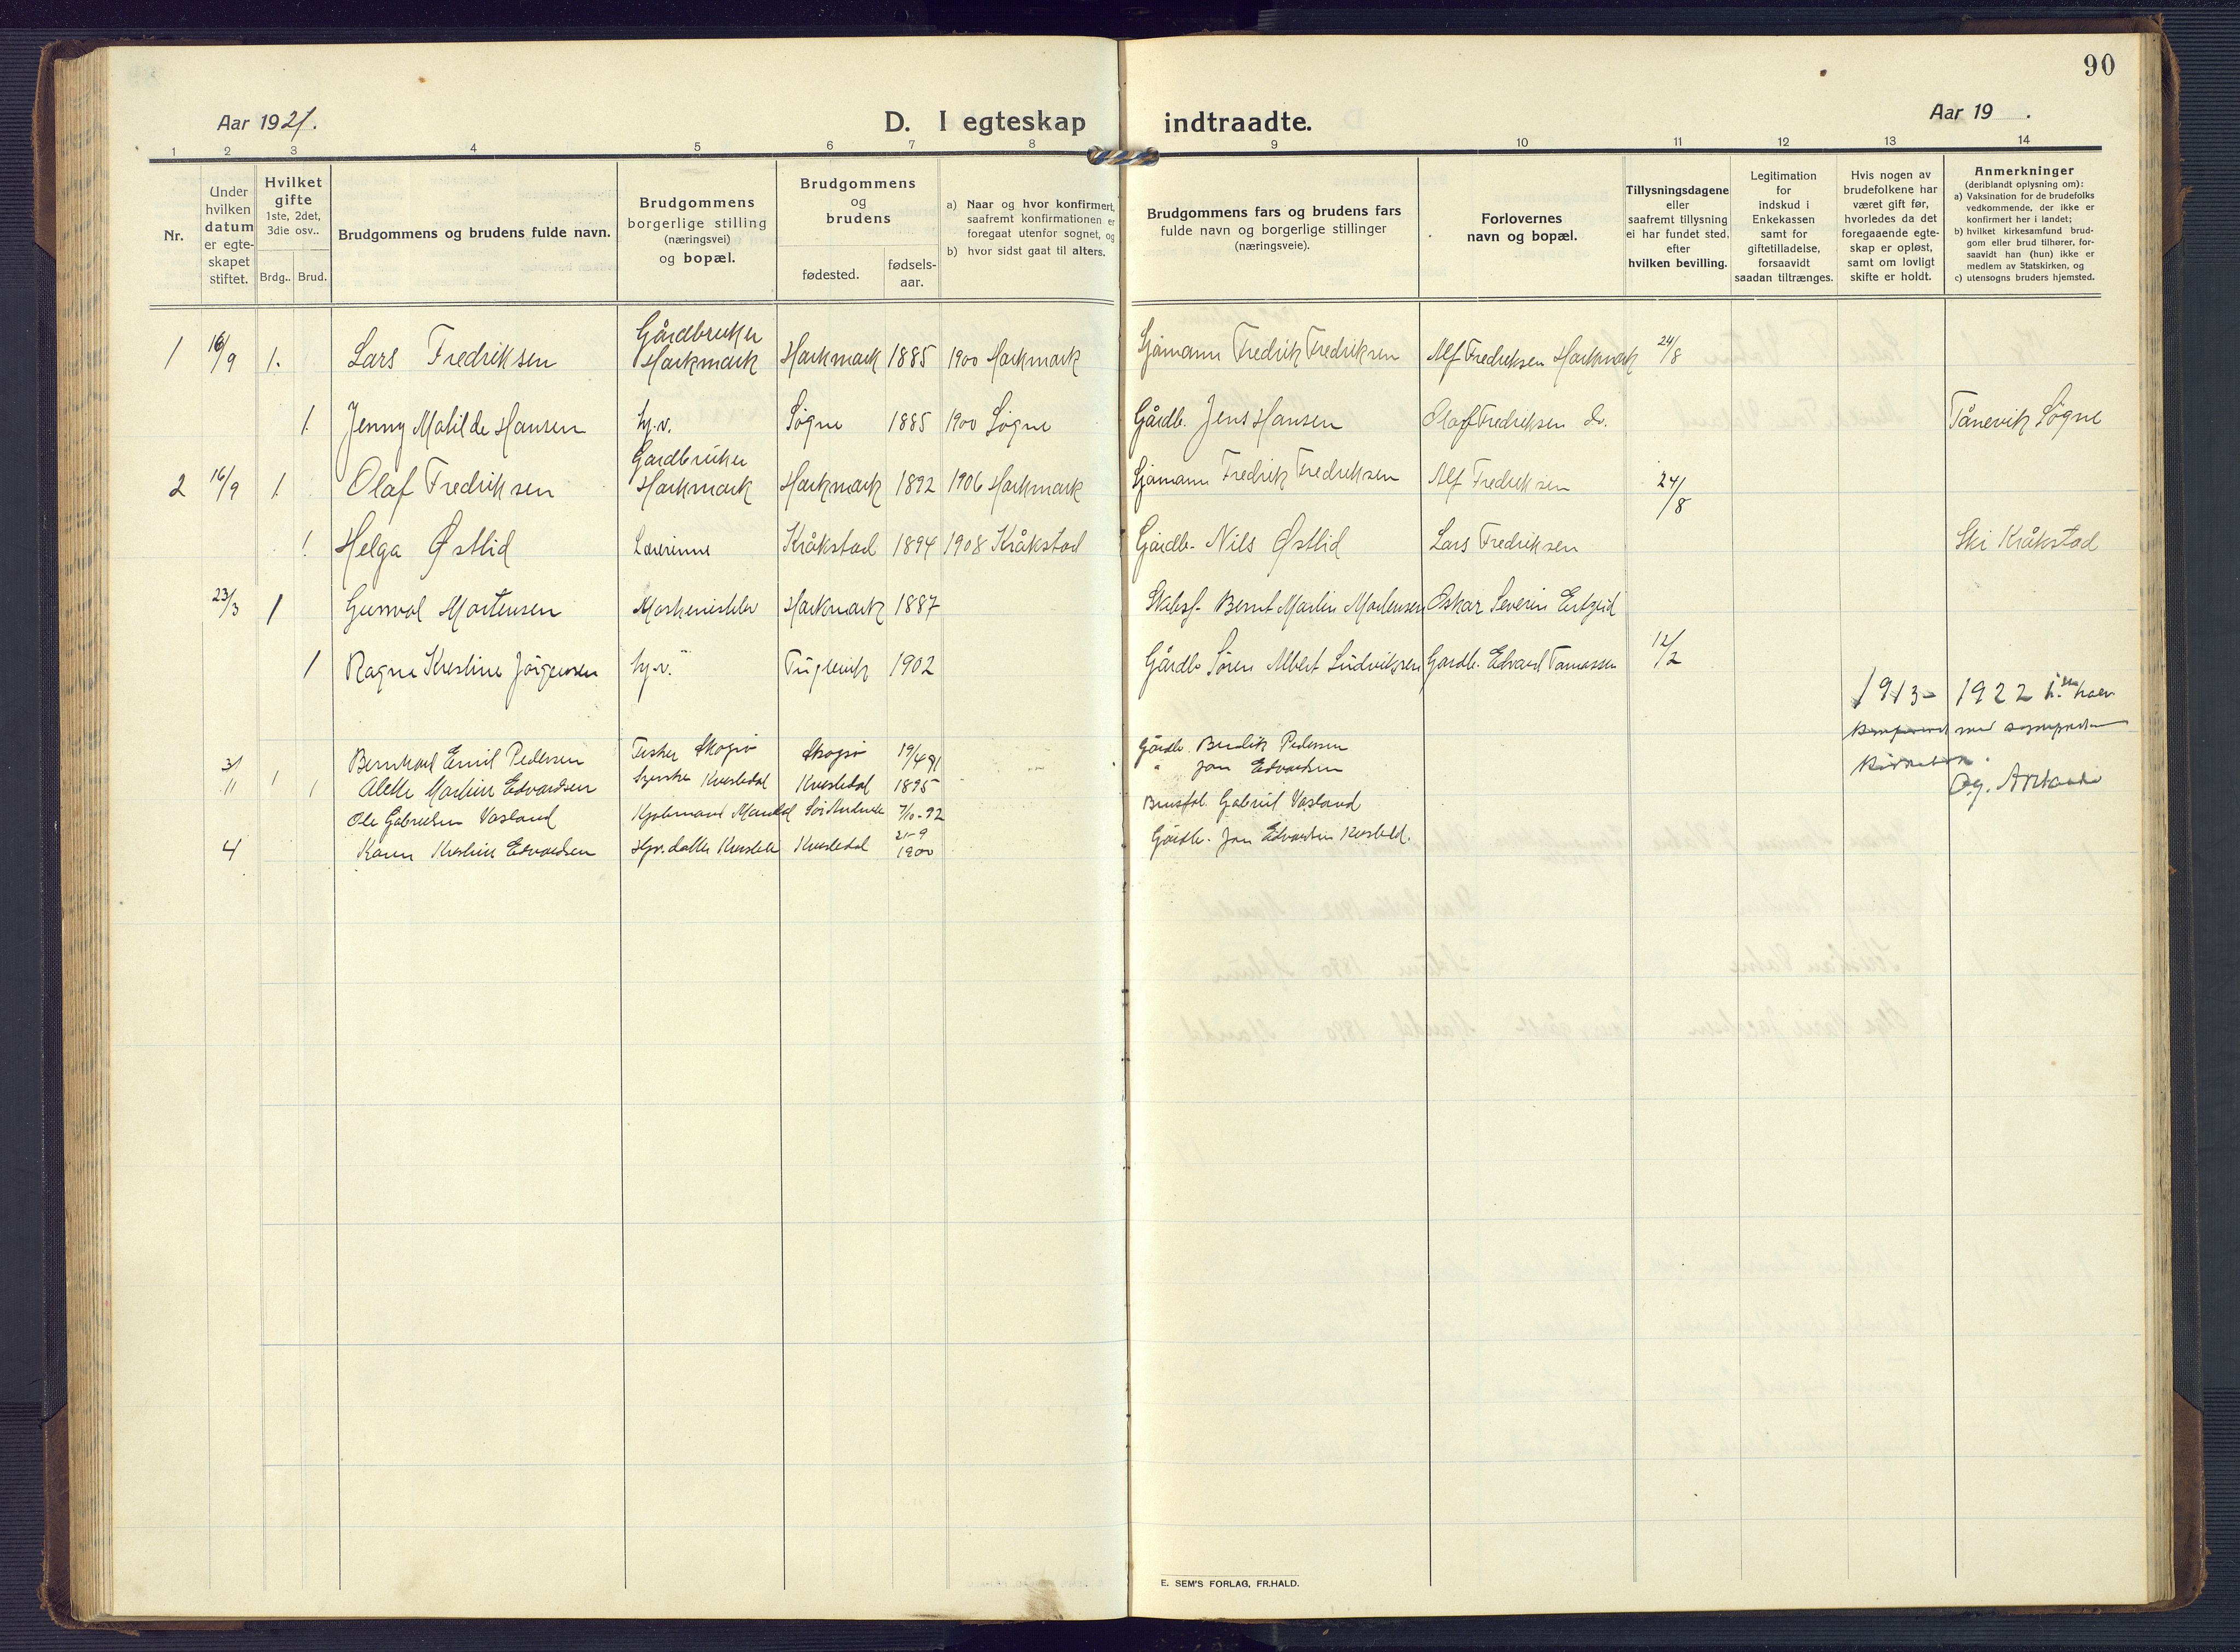 90
Aar 1921.
D. I egteskap indtraadte.
Aar 19 .
1 2 3 4 5 6 7 8 9 10 11 12 13 14
Nr.
Under
hvilken
datum
er egte-
skapet
stiftet.
Hvilket
gifte
1ste, 2det,
3die osv..
Brdg.. Brud.
Brudgommens og brudens fulde navn.
Brudgommens
borgerlige stilling
(næringsvei)
og bopæl.
Brudgommens
og
brudens
fødested.
fødsels-
aar.
a) Naar og hvor konfirmert,
saafremt konfirmationen er
foregaat utenfor sognet, og
b) hvor sidst gaat til alters.
Brudgommens fars og brudens fars
fulde navn og borgerlige stillinger
(næringsveie).
Forlovernes
navn og bopæl.
Tillysningsdagene
eller
saafremt tillysning
ei har fundet sted,
efter
hvilken bevilling.
Legitimation
for
indskud i
Enkekassen
samt for
giftetilladelse,
forsaavidt
saadan tiltrænges.
Hvis nogen av
brudefolkene har
været gift før,
hvorledes da det
foregaaende egte-
skap er opløst,
samt om lovligt
skifte er holdt.
Anmerkninger
(deriblandt oplysning om):
a) Vaksination for de brudefolks
vedkommende, der ikke er
konfirmert her i landet;
b) hvilket kirkesamfund brud-
gom eller brud tilhører, for-
saavidt han (hun) ikke er
medlem av Statskirken, og
c) utensogns bruders hjemsted.
1 16/9 1. Lars Fredriksen Gårdbruker Harkmark Harkmark 1885 1900 Harkmark Sjømann Fredrik Fredriksen Alf Fredriksen Harkmark 24/8
1. Jenny Matilde Hansen hj.v. Søgne 1885 1900 Søgne Gårdb. Jens Hansen Olaf Fredriksen do. Tånevik Søgne
2 16/9 1. Olaf Fredriksen Gardbruker Harkmark Harkmark 1892 1906 Harkmark Sjømann Fredrik Fredriksen Alf Fredriksen 24/8
1. Helga Østlid Lærerinne Kråkstad 1894 1908 Kråkstad Gårdb. Nils Østlid Lars Fredriksen Ski Kråkstad
23/3 1 Gunval Mortensen Harkmark 1887 Bernt Martin Mortensen Oskar Severin
1 Ragna Kristine Jörgensen hj.v. 1902 Gårdb Søren Albert Ludviksen Gardb. Edvard Tomassen 12/2
1913- 1922
Bernhard Emil Pedersen Fisker Skogsø Skogsø 19/4 91 Gårdb. Pedersen
11 1 1 Martine Edvardsen 1895 " Jon Edvardsen
Ole Gabrielsen Vasland Mandal 7/10-92 Gabriel Vasland
4 Karen Kristine Edvardsen 21-9 1900 Gårdb. Jon Edvardsen
E. SEM'S FORLAG, FR.HALD.